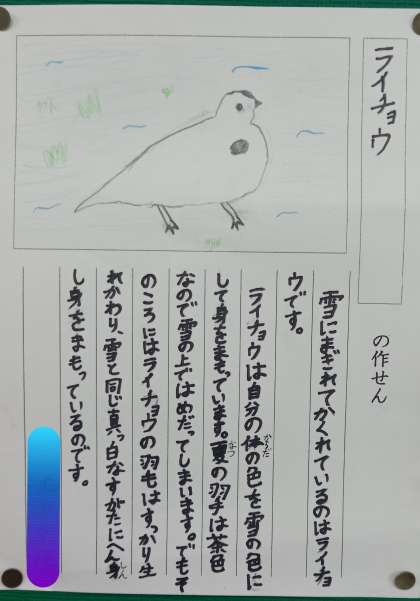 ライチョウ
の作せん
雪にまぎれてかくれているのはライチョ
ウです。
からだ
ライチョウは自分の体の色を雪の色に
なつ
して身をまもっています。夏の羽毛は茶色
なので雪の上ではめだってしまいます。でもそ
のころにはライチョウの羽毛はすっかり生
しん
れかわり、雪と同じ真っ白なすがたにへん身
し身をまもっているのです。